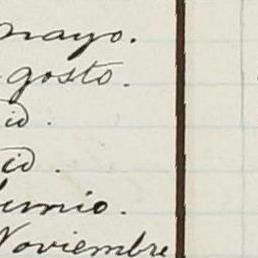 mayo.
agosto.
id.
id.
Junio.
Noviembre